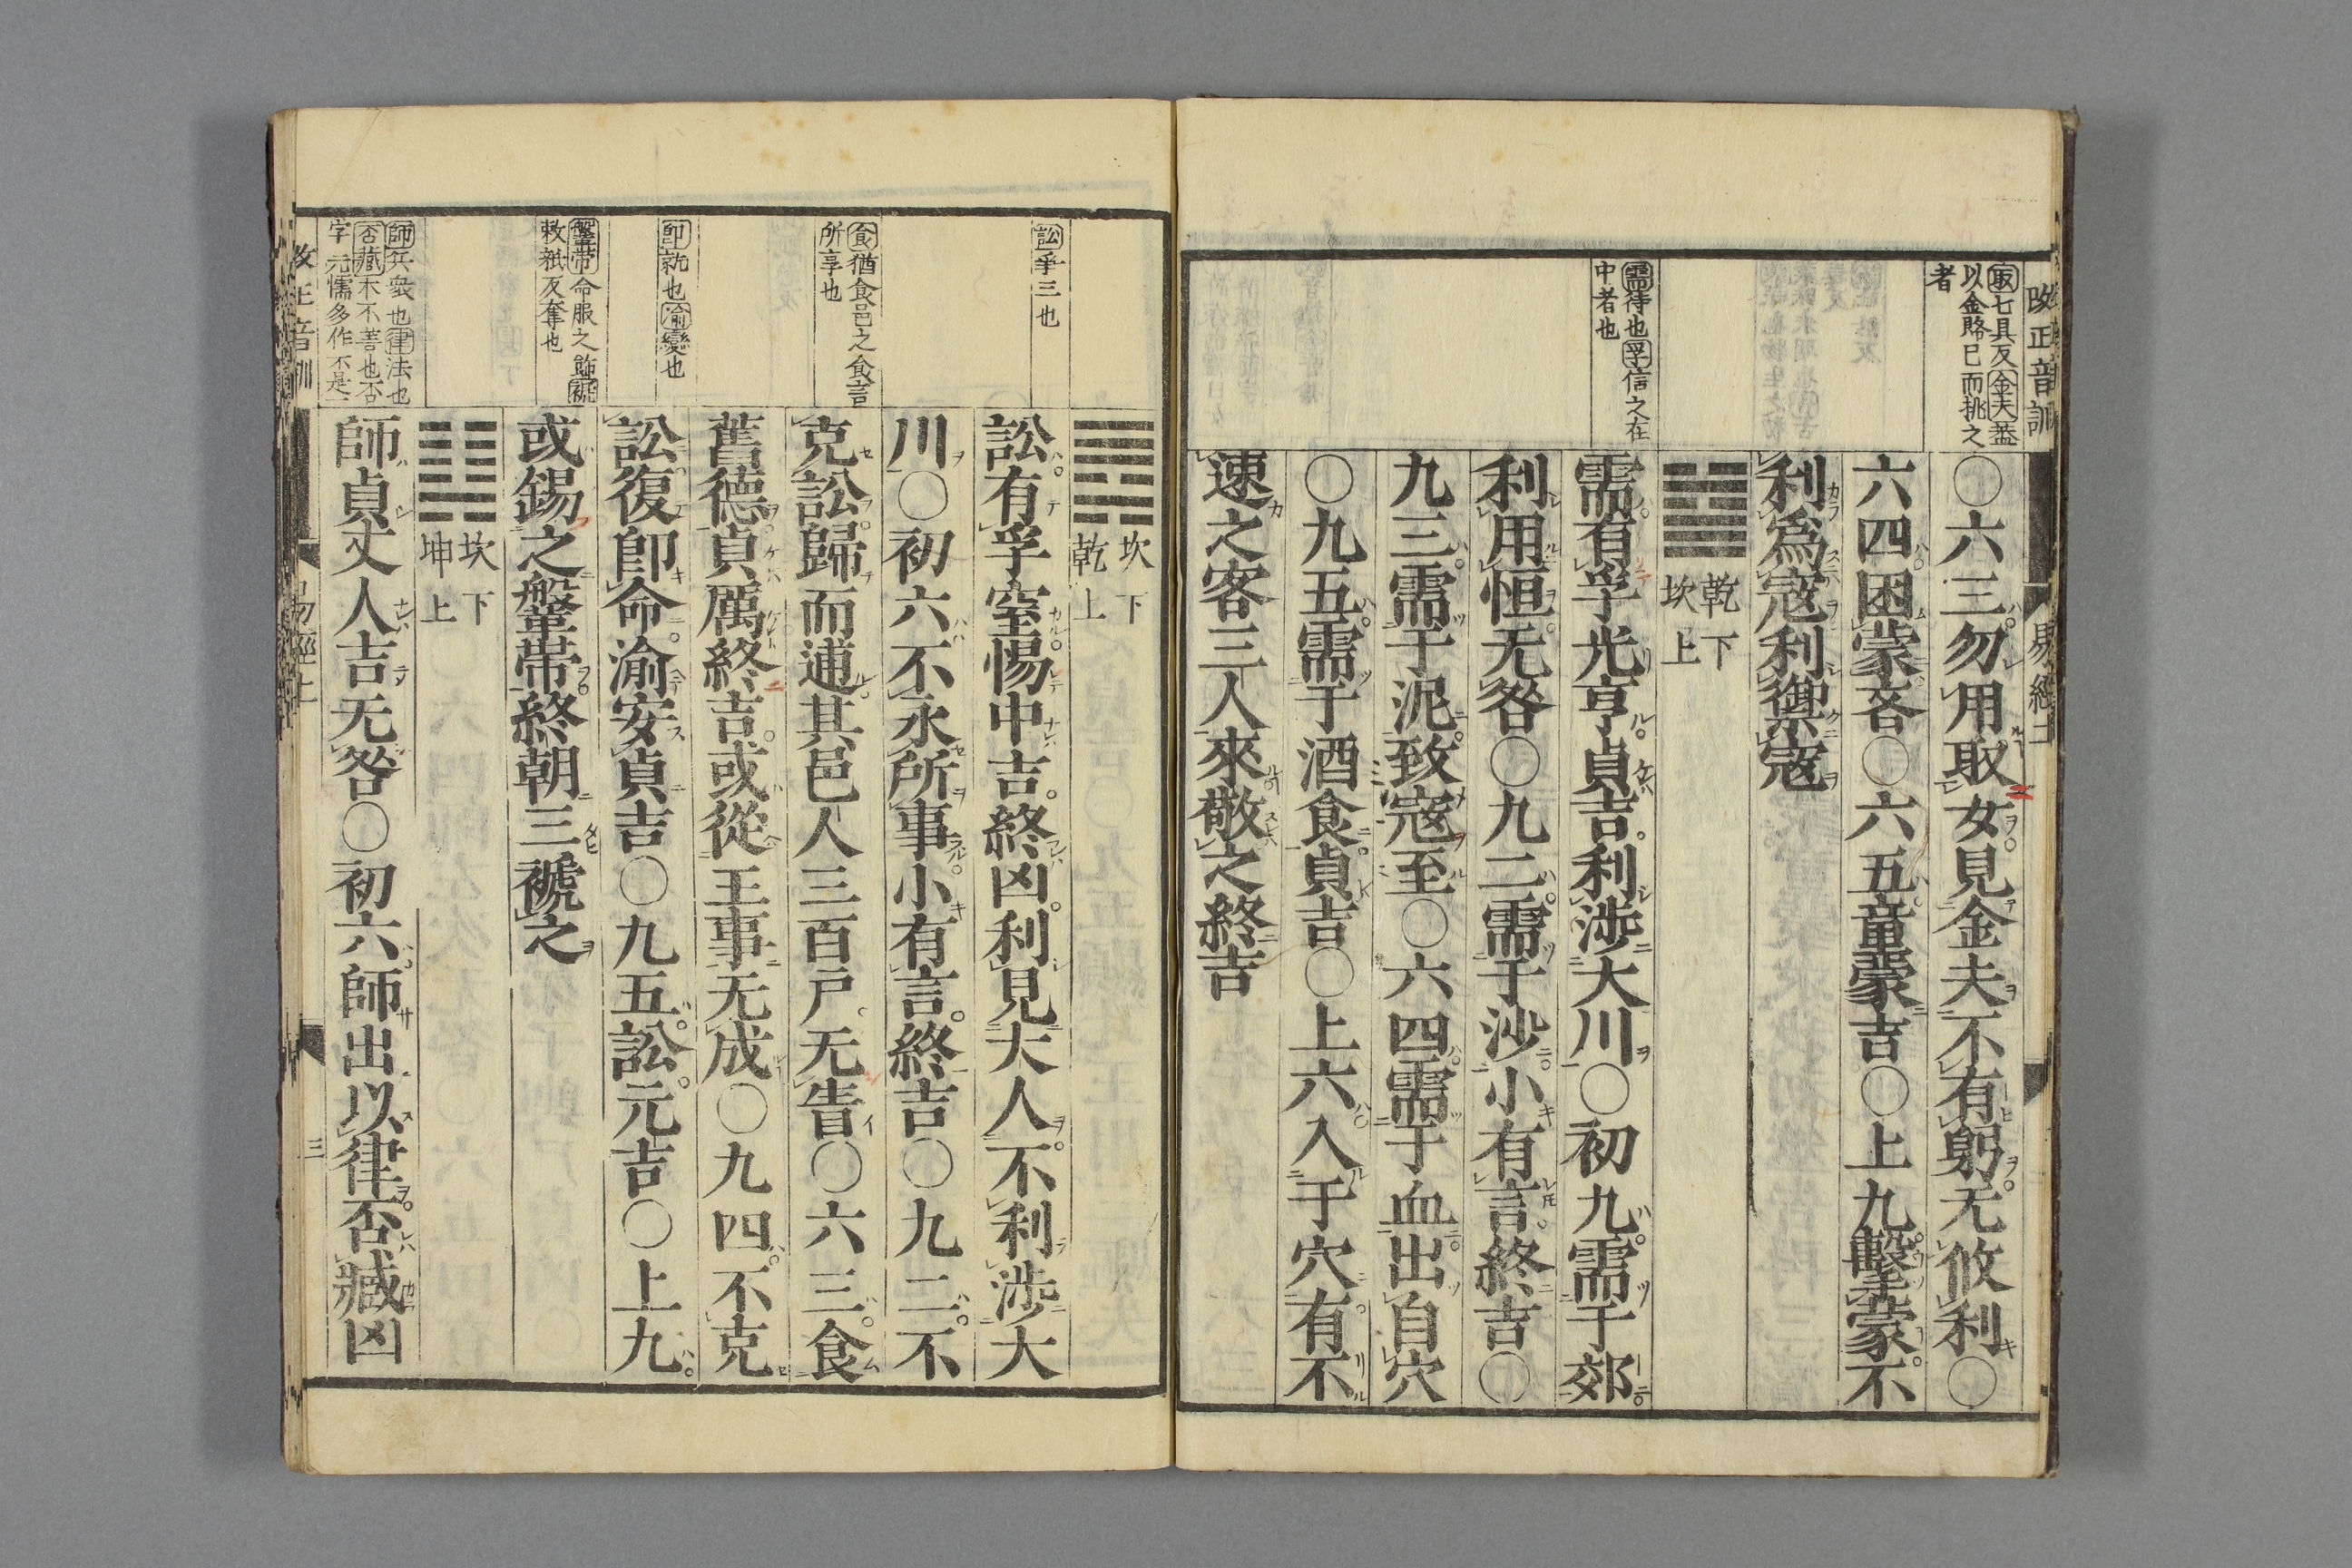 改正音訓
易經上
取七具反金夫蓋
以金賂已而挑之
者
○六三勿用取女見金夫不有躬无攸利○
六四困蒙吝○六五童蒙吉○上九擊蒙不
利爲寇利禦寇
乾下
坎上
需待也孚信之在
中者也
需有孚光亨貞吉利涉大川○初九需于郊
利用恒无咎○九二需于沙小有言終吉○
九三需于泥致寇至○六四需于血出自穴
○九五需于酒食貞吉○上六入于穴有不
速之客三人來敬之終吉
坎下
乾上
訟爭三也
訟有孚窒惕中吉終凶利見大人不利涉大
川○初六不永所事小有言終吉○九二不
食猶食邑之食言
所享也
克訟歸而逋其邑人三百戶无眚○六三食
舊德貞厲終吉或從王事无成○九四不克
卽就也渝變也
訟復卽命渝安貞吉○九五訟元吉○上九
鞶帶命服之飾褫
敕紙反奪也
或錫之鞶帶終朝三褫之
坎下
坤上
師兵衆也律法也
否藏木不善也否
字 元儒多作 不是一
師貞丈人吉无咎○初六師出以律否臧凶
改正音訓
易經上
三